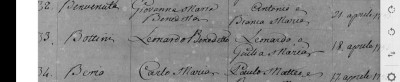 32. Benvenuti Giovanna Maria Benedetta Antonio e Bianca Maria 21 aprile
33. Bottini Leonardo Benedetto Lenardo e Giulia Maria 18 aprile
34. Berio Carlo Maria Paulo Matteo e 17 aprile